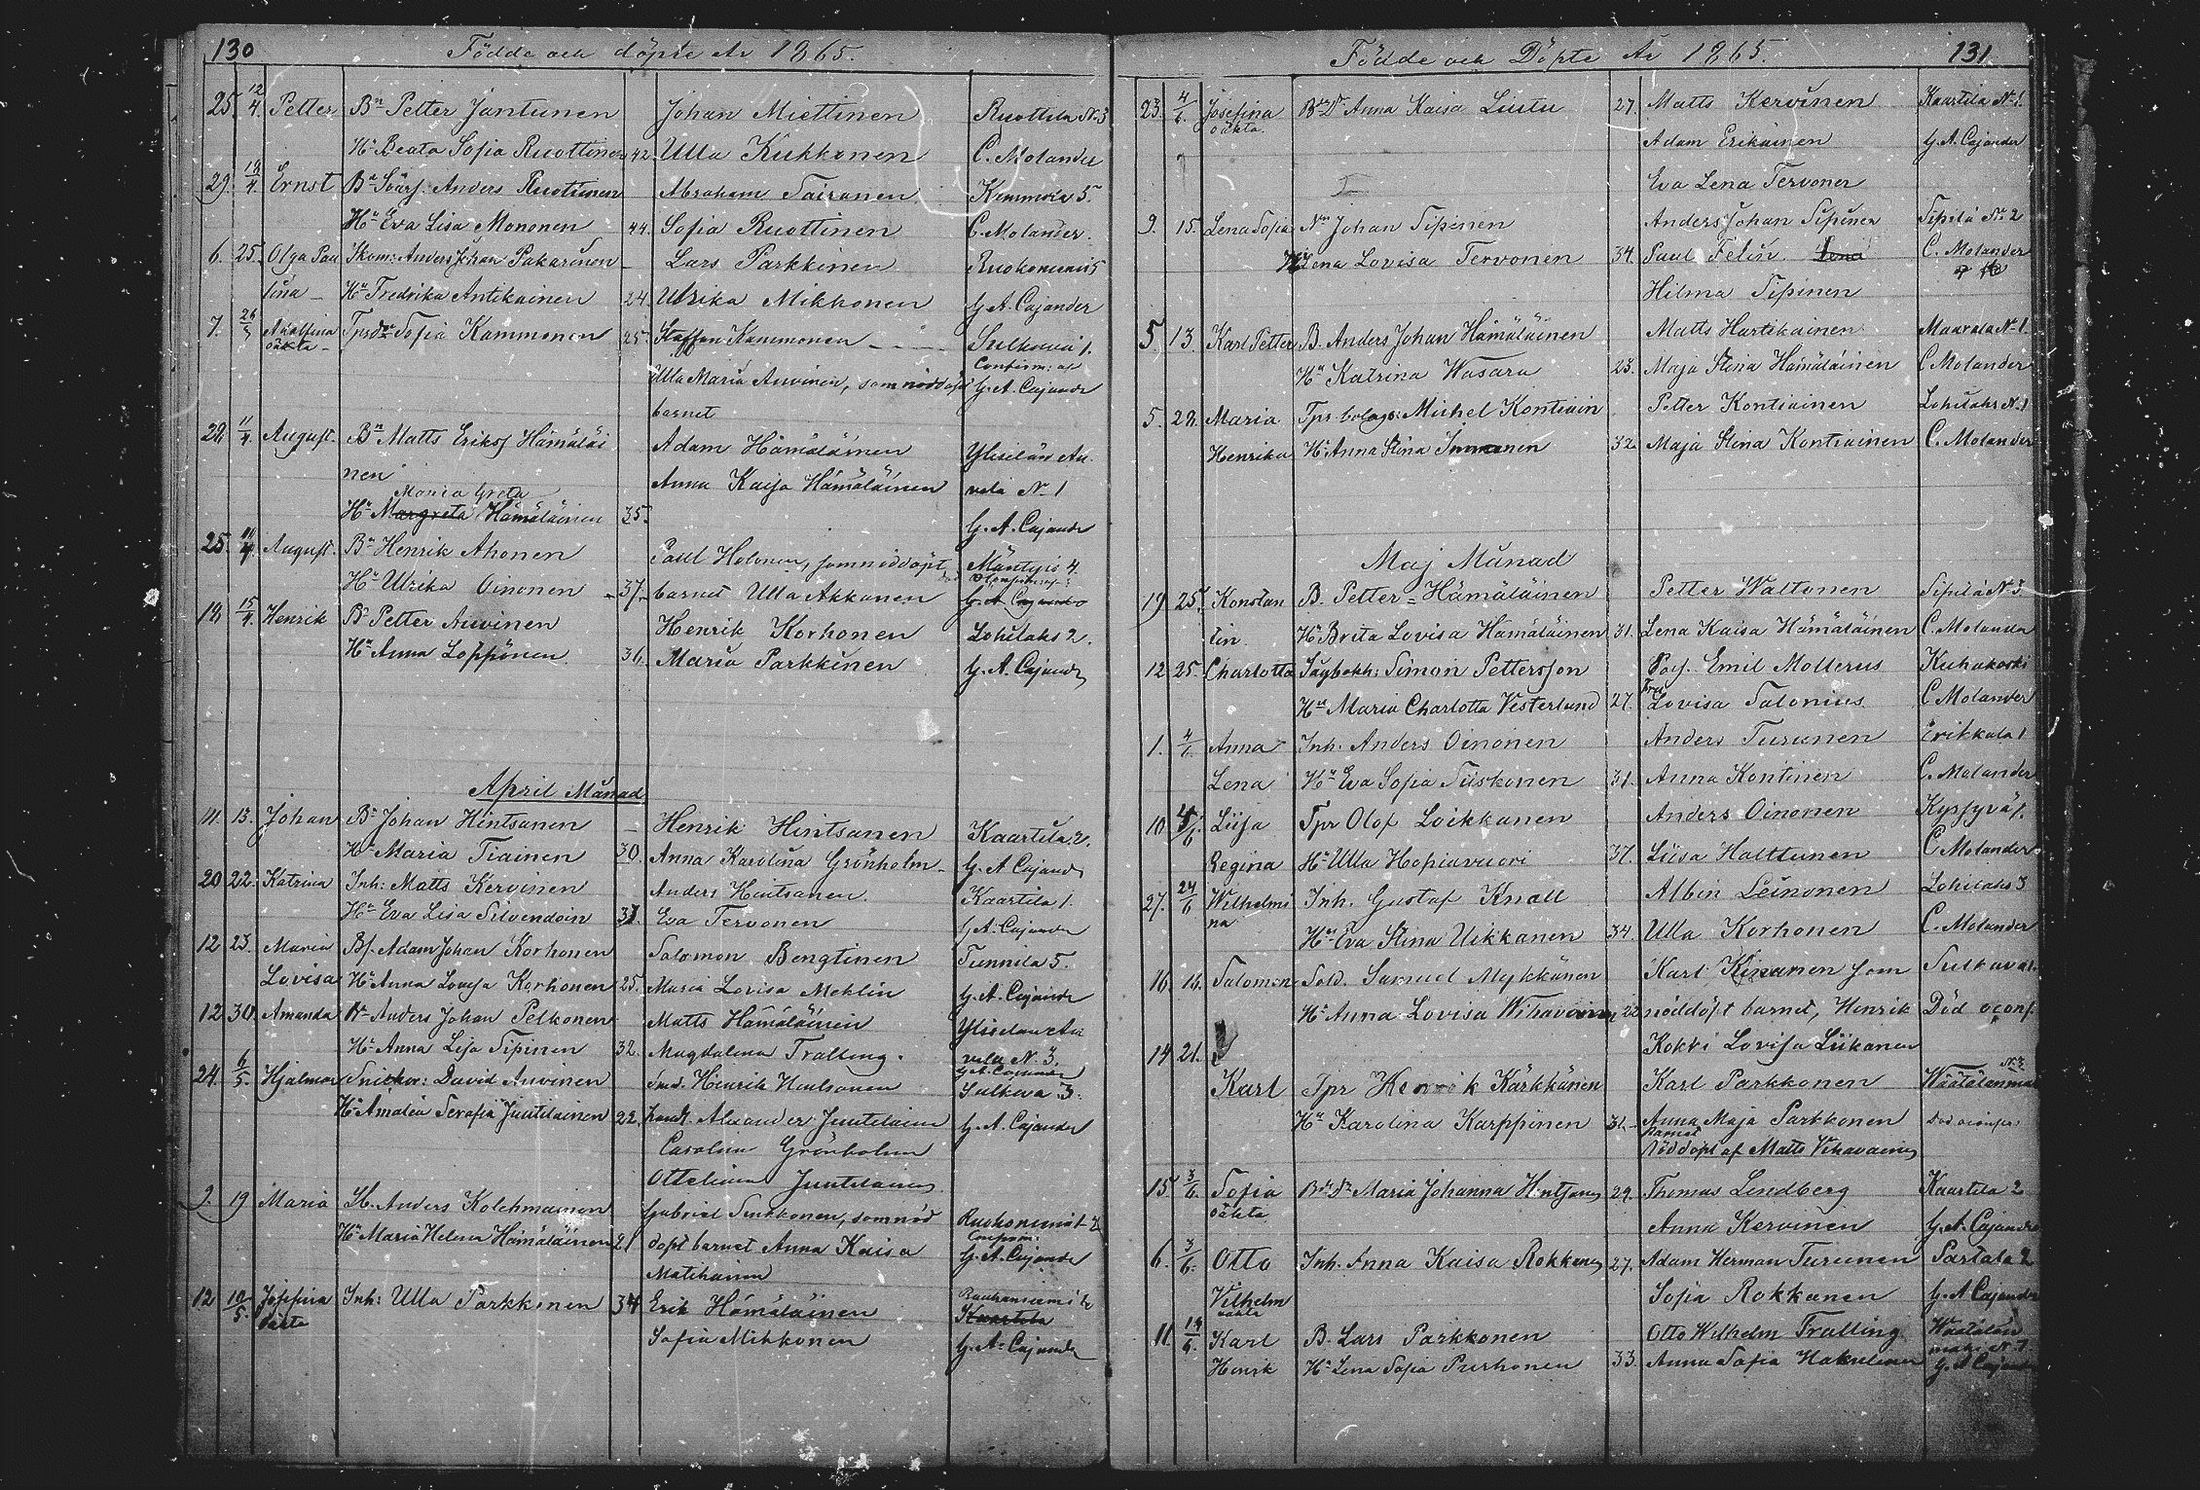 130 Födde och döpte År 1865.
25. 12/4. Petter Bn Petter Jantunen Johan Miettinen Ruottila No 3
Hu Beata Sofia Ruottinen 42. Ulla Kukkonen C. Molander
29. 14/4 Ernst Anders Ruottinen Abraham Tairanen Kummola 5.
Hu Eva Lisa Mononen 44. Sofia Ruottinen C. Molander.
6. 25. Olga Pau Skom: Anders Johan Pakarinen Lars Parkkinen Ruokoniemi 5
lina Hu Fredrika Antikainen 24. Ulrika Mikkonen G. A. Cajander
7. 26/3 Adolfina Tprdr Sofia Kammonen 25. Staffan Kammonen Sulkava 1.
oäkta Confirm: af
Ulla Maria Auvinen, som nöddöpt G. A. Cajander
barnet
28. 11/4. August. Bn Matts Eriksf Hämäläi Adam Hämäläinen
nen Anna Kaisa Hämäläinen vela No 1
Maria Greta
Hu Margreta Hämäläinen 35. G. A. Cajander
25. August. Bn Henrik Ahonen Paul Holonen, som nöddöpt Mäntyis 4.
Hu Ulrika Oinonen 37. barnet Ulla Akkanen G. A. Cajander
14. 15/4. Henrik Bn Petter Auvinen Henrik Korhonen Lohilaks 2.
Hu Anna Loppönen 36. Maria Parkkinen G. A. Cajander
April Månad
11. 13. Johan Bn Johan Hintsanen Henrik Hintsanen Kaartila 2.
Hu Maria Tiainen 30. Anna Karolina Grönholm G. A. Cajander
20 22. Katrina Inh: Matts Kervinen Anders Hintsanen. Kaartila 1.
Hu Eva Lisa Silvendoin 37. Eva Tervonen G. A. Cajander
12 23. Maria Bf. Adam Johan Korhonen Salomon Bengtinen Tunnila 5.
Lovisa Hu Anna Lovisa Korhonen 25. Maria Lovisa Meklin G. A. Cajander
12 30. Amanda Anders Johan Pelkonen Matts Hämäläinen
Hu Anna Lisa Sipinen 32. Magdalena Tralling. vela N 3.
G. A. Cajander
24. 6/5. Hjalmar Snickar: David Auvinen Henrik Sulkava 3.
Hu Amalia Serafia Juutilainen 22. Alexander Juutilainen G. A. Cajander
Carolina Grönholm
Ottiliana Juutilainen
2. 19 Maria Anders Kolehmainen Gabriel som nöd
Hu Maria Helena Hämäläinen 21 döpt barnet Anna Kaisa G. A. Cajander
Matikainen
12 10/5. Josefina Inh: Ulla Parkkinen 34 Erik Hämäläinen
oäkta Kaartila
Sofia Mikkonen G. A. Cajander
Födde och Döpte År 1865. 131
23. 4/6. Josefina Anna Kaisa Liutu 27. Matts Kervinen Kaartila No 1.
oäkta Adam Erikainen G. A. Cajander
Eva Lena Tervonen
9. 15. Lena Sofia Johan Sipinen Anders Johan Sipinen Sipilä No 2
Hu Lena Lovisa Tervonen 34. Paul Felin. Lena C. Molander
Hilma Sipinen
5. 13. Karl Petter B. Anders Johan Hämäläinen Matts Hartikainen Maarala No 1.
Hu Katrina Wasara 23. Maja Stina Hämäläinen C. Molander
5. 28. Maria Tpr bolags: Michel Kontiain Petter Kontiainen Lohilaks No 1
Henrika Hu Anna Stina Immonen 32. Maja Stina Kontiainen C. Molander
Maj Månad
19. 25. Konstan B. Petter Hämäläinen Petter Waltonen Sipilä No 3.
tin. Hu Brita Lovisa Hämäläinen 31. Lena Kaisa Hämäläinen C. Molander
12 25. Charlotta Simon Pettersson Emil Mollerus Kuhakoski
Hu Maria Charlotta Vesterlund 27. Lovisa Salonius C. Molander
1. 4/6. Anna Inh. Anders Oinonen Anders Turunen Erikkala 1
Lena Hu Eva Sofia Tiiskonen 31. Anna Kontinen C. Molander
10 Liisa Tpr Olof Loikkanen Anders Oinonen
Regina Hu Ulla Hopiavuori 37. Liisa Halttunen C. Molander
27. 24/6 Wilhelmi Inh. Gustaf Knall Albin Leinonen Lohilaks 3
na Hu Eva Stina Uikkanen 34. Ulla Korhonen C. Molander
16. 16. Salomon Sold. Samuel Mykkänen Karl som Sulkava 1.
Hu Anna Lovisa Wihavainen 22 nöddöpt barnet, Henrik Död oconf.
Kokki Lovisa Liikanen
14 21.
Karl Tpr Henrik Kärkkänen Karl Parkkonen No 3
Hu Karolina Karppinen 31. Anna Maja Parkkonen
barnet
Nöddöpt af Matts Vihavainen
15. 3/6. Sofia Maria Johanna Hintsanen 29. Thomas Lindberg Kaartila 2
oäkta Anna Kervinen G. A. Cajander
6. 3/6. Otto Inh. Anna Kaisa Rokkanen 27. Adam Herman Turunen Partala 2
Vilhelm Sofia Rokkanen G. A. Cajander
oäkta
11. 14/6. Karl B. Lars Parkkonen Otto Wilhelm Tralling
Henrik Hu Lena Sofia Purhonen 33. Anna Sofia Hakulinen G. A. Cajander